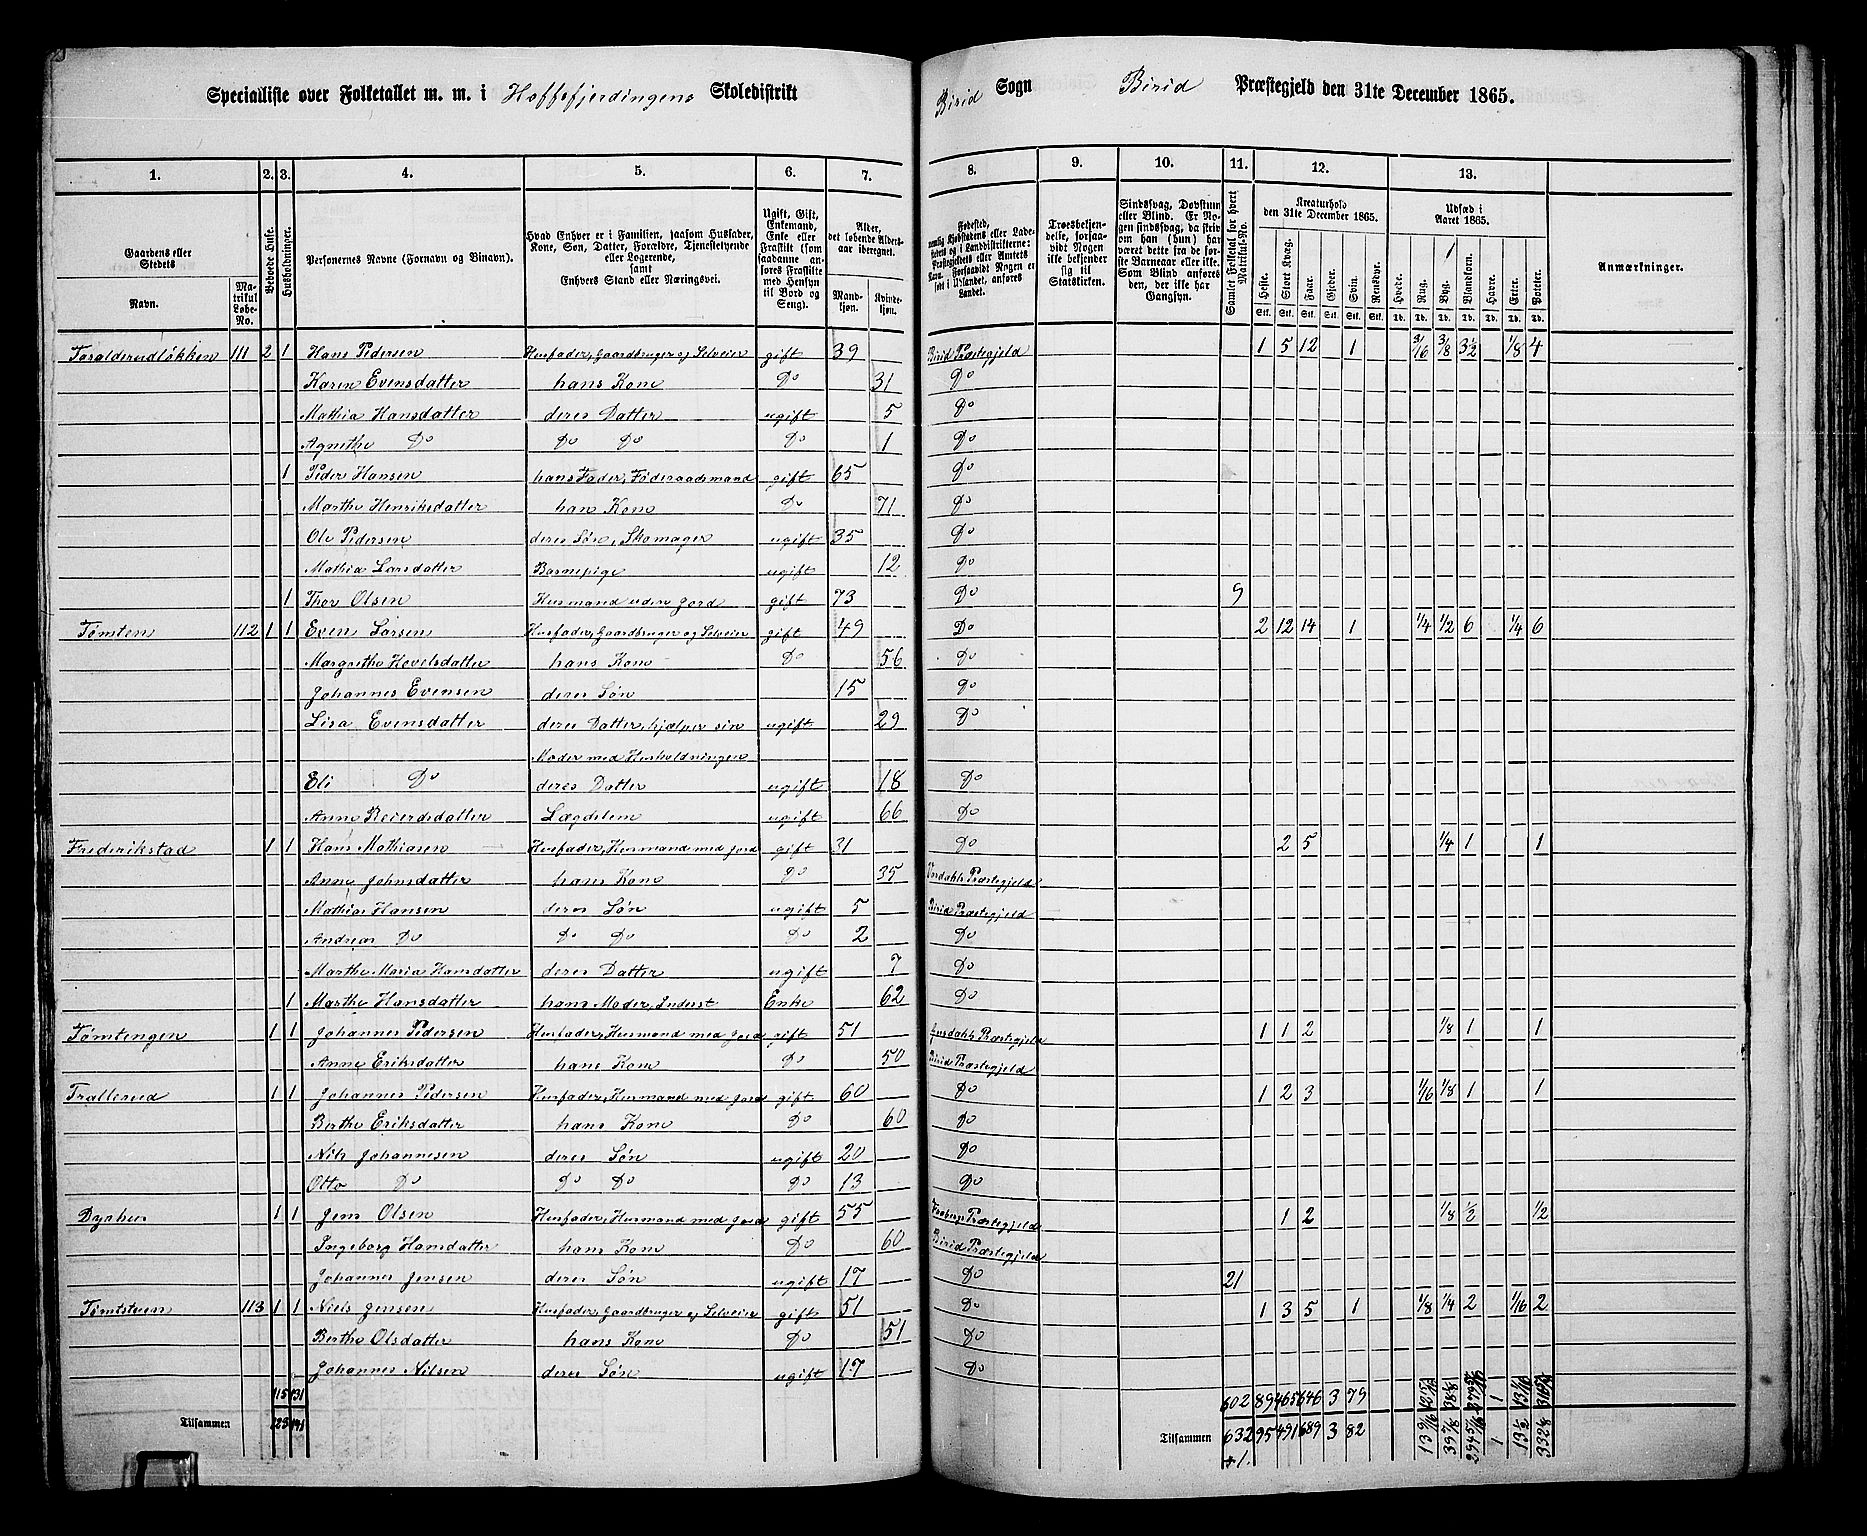 Specialliste over Folketallet m. m. i Hoffsfjerdingens Skoledistrikt
Birid Sogn Birid Præstegjeld den 31te December 1865.
1. 2. 3. 4. 5. 6. 7. 8. 9. 10. 11. 12. 13.
Gaardens eller Stedets
Navn.
Matrikul Løbe-No.
Beboede Huse.
Husholdninger.
Personernes Navne (Fornavn og Binavn).
Hvad Enhver er i Familien, saasom Husfader, Kone, Søn, Datter, Forældre, Tjenestetyende eller Logerende, samt Enhvers Stand eller Næringsvei.
Ugift, Gift, Enkemand, Enke eller Fraskilt (som saadanne anføres Fraskilte med Hensyn til Bord og Seng).
Alder, det løbende Aldersaar iberegnet.
Mandkjøn. Kvindekjøn.
Troesbekjendelse, forsaavidt Nogen ikke bekjender sig til Statskirken.
Sindssvag, Døvstum eller Blind. Er Nogen sindssvag, da skrives om han (hun) har været dette fra de første Barneaar eller ikke. Som Blind anføres den, der ikke har Gangsyn.
Samlet Folketal for hvert Matrikul-No.
Kreaturhold den 31te December 1865.
Heste. Stort Kvæg. Faar. Gjeder. Svin. Rensdyr.
Udsæd i Aaret 1865.
Hvede. Rug. Byg. Blandkorn. Havre. Erter. Poteter.
Anmærkninger.
Toralderudløkken 111 2 1 Hans Pedersen Husfader, Gaardbruger og Selveier gift 39 Birid Præstegjeld 1 5 12 1 3/16 3/8 3½ 1/8 4
Karen Evensdatter hans Kone Do 31 Do
Mathia Hansdatter deres Datter ugift 5 Do
Agnethe Do Do Do Do 1 Do
1 Peder Hansen hans Fader, Føderaadsmand gift 65 Do
Marthe Henriksdatter han Kone Do 71 Do
Ole Pedersen deres Søn, Skomager ugift 35 Do
Mathia Larsdatter Barnepige ugift 12 Do
1 Thor Olsen Husmand uden Jord gift 73 Do 9
Tømten 112 1 1 Even Larsen Husfader, Gaardbruger og Selveier gift 49 Do 2 12 14 1 1/4 1/2 6 1/4 6
Margrethe Hovelsdatter hans Kone Do 56 Do
Johannes Evensen deres Søn 15 Do
Lisa Evensdatter deres Datter, hjælper sin ugift 29 Do
Moder med Husholdningen
Eli Do deres Datter ugift 18 Do
Anne Reiersdatter Lægdslem ugift 66 Do
Frederikstad 1 1 Hans Mathiasen Husfader, Husmand med Jord gift 31 Do 2 5 1/4 1 1
Anne Johnsdatter hans Kone Do 35 Præstegjeld
Mathias Hansen deres Søn ugift 5 Birid Præstegjeld
Andreas Do Do Do Do 2 Do
Marthe Maria Hansdatter deres Datter ugift 7 Do
1 Marthe Hansdatter hans Moder, Inderst Enke 62 Do
Tømtengen 1 1 Johannes Pedersen Husfader, Husmand med Jord gift 51 Præstegjeld 1 1 2 1/8 1 1
Anne Eriksdatter hans Kone Do 50 Birid Præstegjeld
Trallerud 1 1 Johannes Pedersen Husfader, Husmand med Jord gift 60 Do 1 2 3 1/16 1/8 1 1
Berthe Eriksdatter hans Kone Do 60 Do
Nils Johannesen deres Søn ugift 20 Do
Otto Do Do Do Do 13 Do
Dyrhus 1 1 Jens Olsen Husfader, Husmand med Jord gift 55 Præstegjeld 1 2 1/8 ½ 1/2
Ingeborg Hansdatter hans Kone Do 60 Birid Præstegjeld
Johannes Jensen deres Søn ugift 17 Do 21
Tømtstuen 113 1 1 Niels Jensen Husfader, Gaardbruger og Selveier gift 51 Do 1 3 5 1 1/8 1/4 2 1/16 2
Berthe Olsdatter hans Kone Do 51 Do
Johannes Nilsen deres Søn ugift 17 Do
115 131 602 89 465 646 3 79 1
Tilsammen Tilsammen 632 95 491 689 3 82 1
+1.